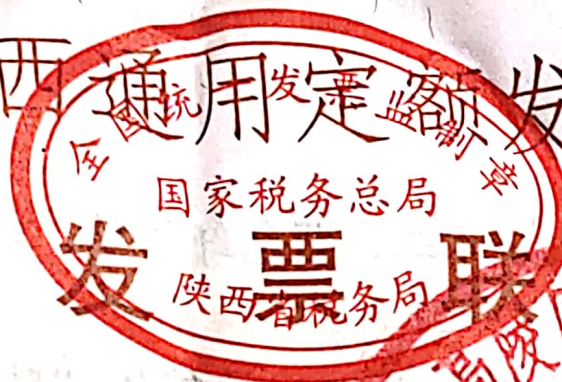 西通用定额发
全国统一发票监制章
国家税务总局
发票联
陕西省税务局
高陵